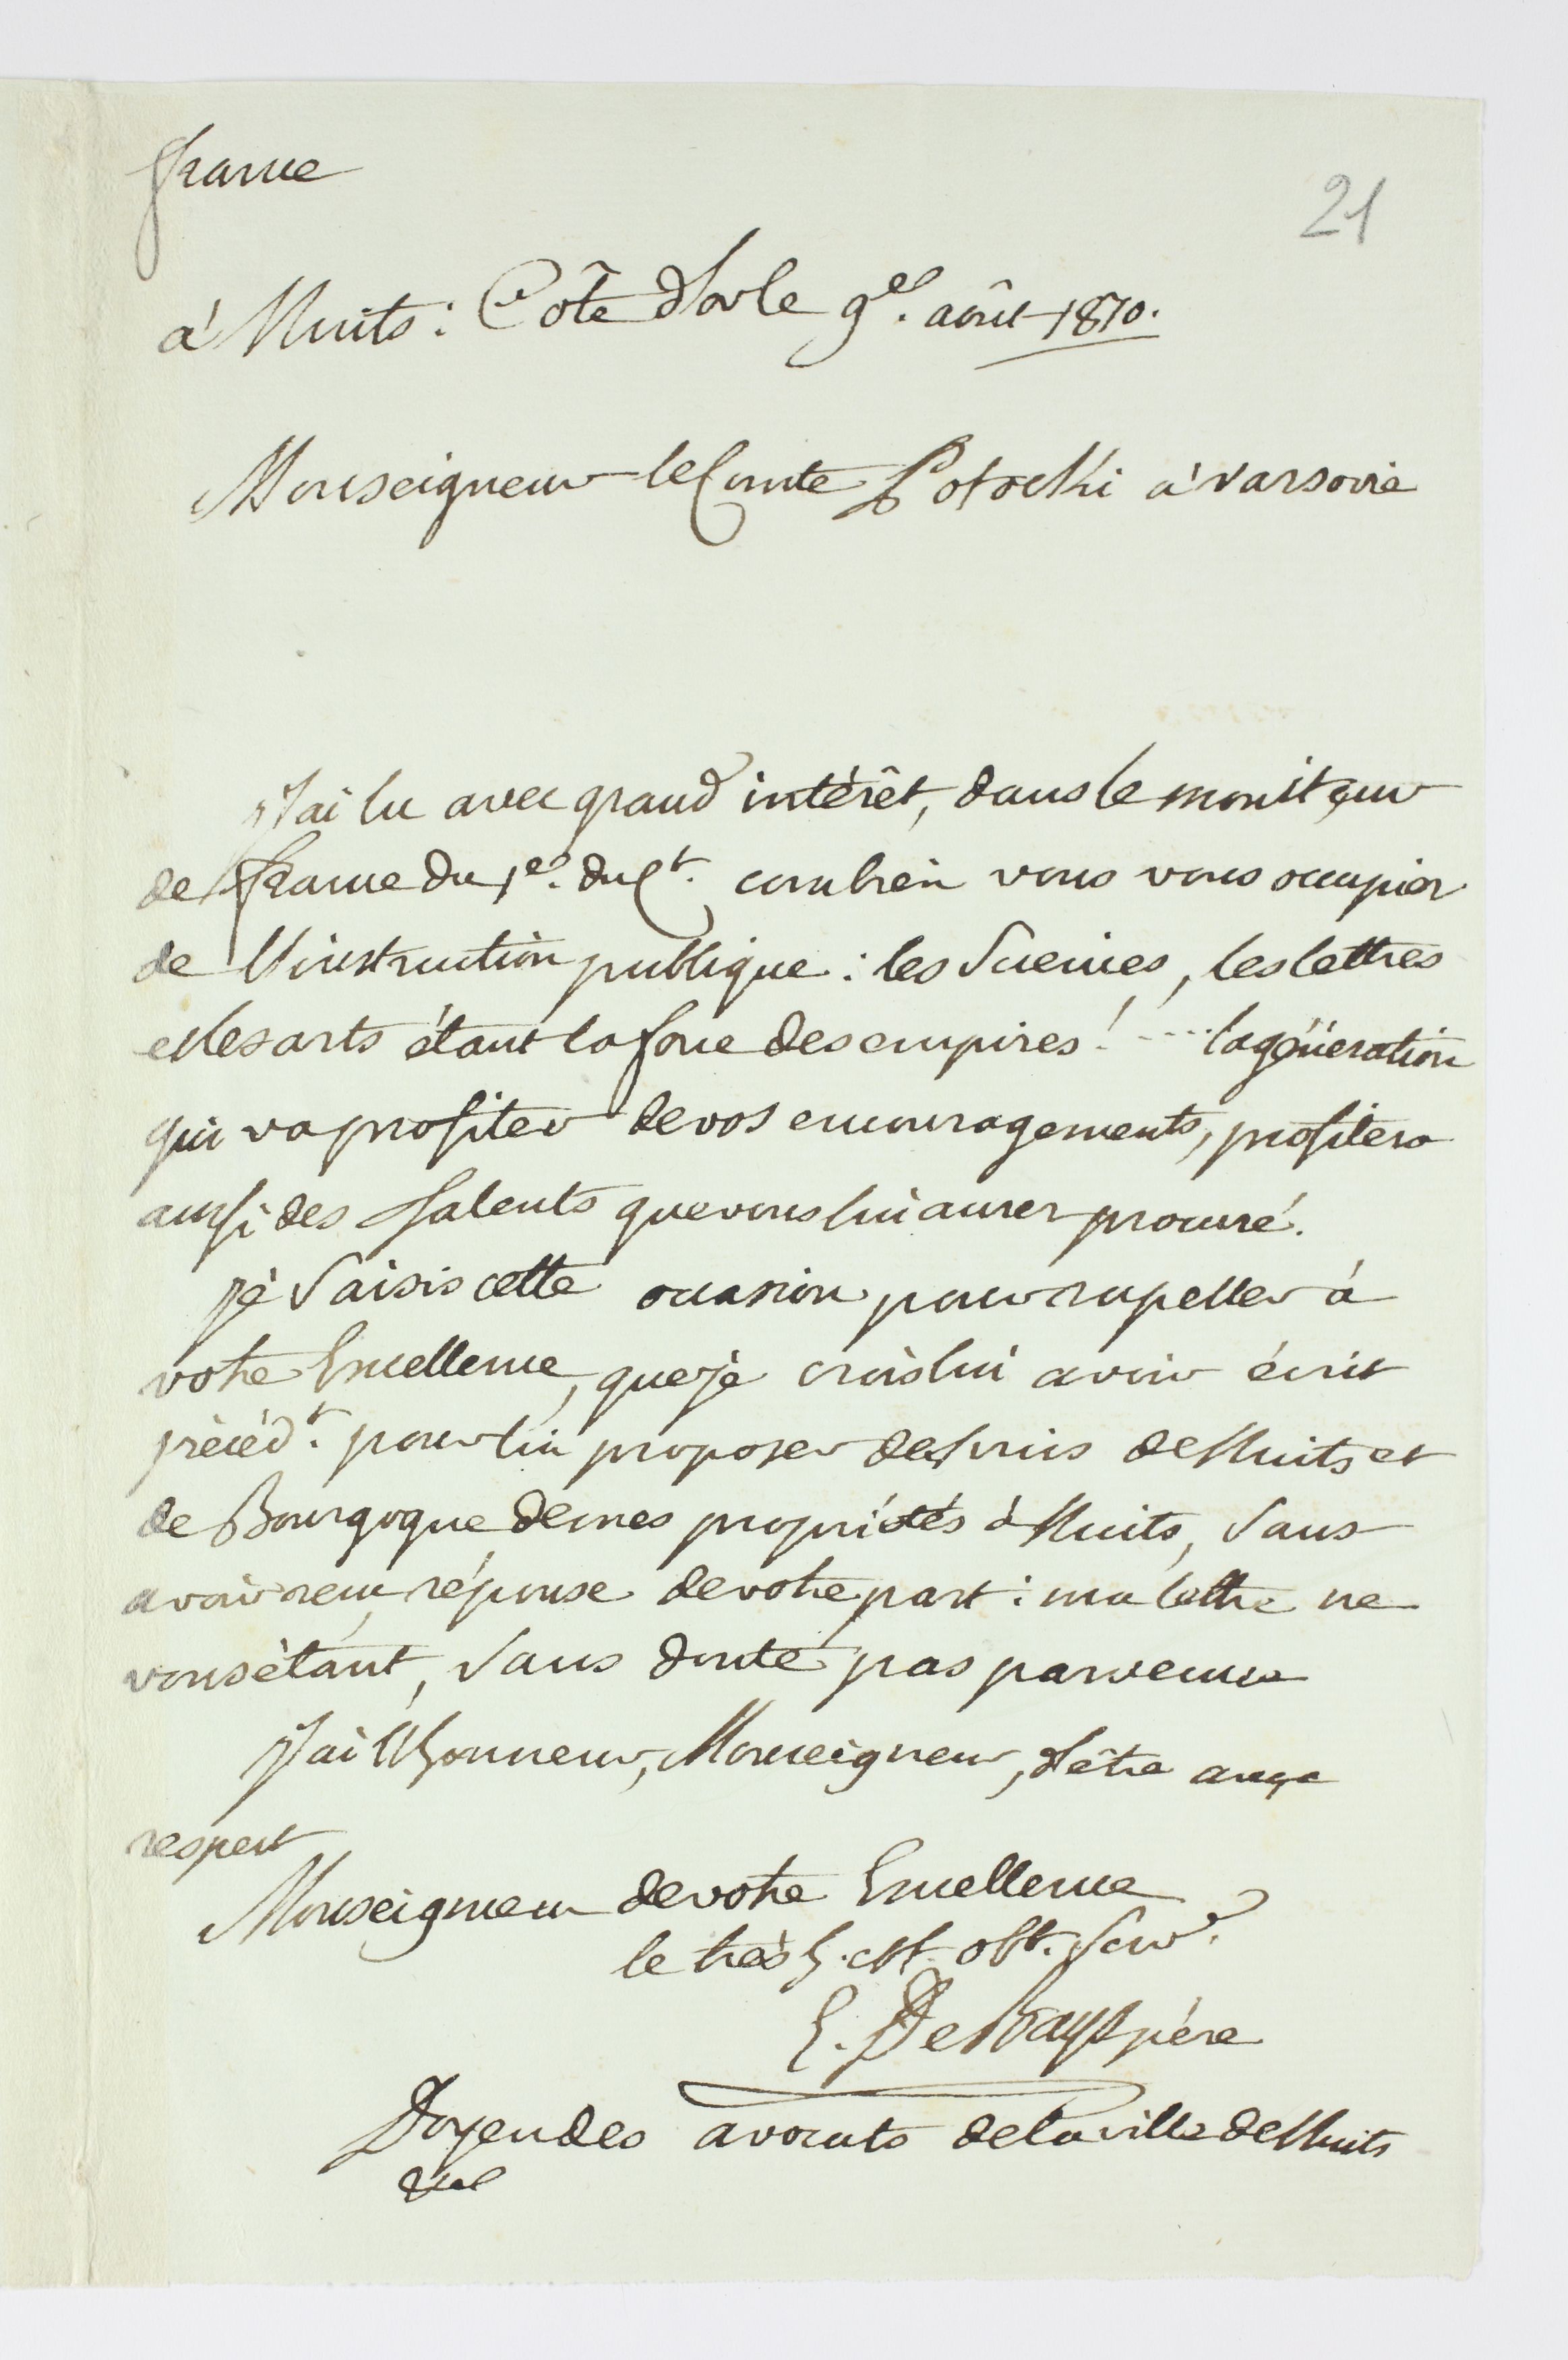 france
21
à Nuits: Côte d'or le 9el. août 1810.
Monseigneur le Comte Potocki à Varsovie
J'ai lu avec grand intérêt, dans le moniteur
de france du 1el. du Ct. combien vous vous occupiez
de l'instruction publique: les Sciences, les lettres
et les arts étant la force des empires! ... la géneration
qui va profiter de vos encouragements, profitera
aussi des talents que vous lui aurez procuré.
Je Saisis cette occasion pour rapeller à
votre Excellence, que je crois lui avoir écrit
précédt. pour lui proposer des vins de Nuits et
de Bourgogne de mes propriétés à Nuits, Sans
avoir reçu réponse de votre part: ma lettre ne
vous étant, Sans doute pas parvenue
J'ai l'honneur, Monseigneur, d'être avec
respect
Monseigneur de votre Excellence
le très h. et t. obt. Serv.
père
Doyen des avocats de la ville de Nuits